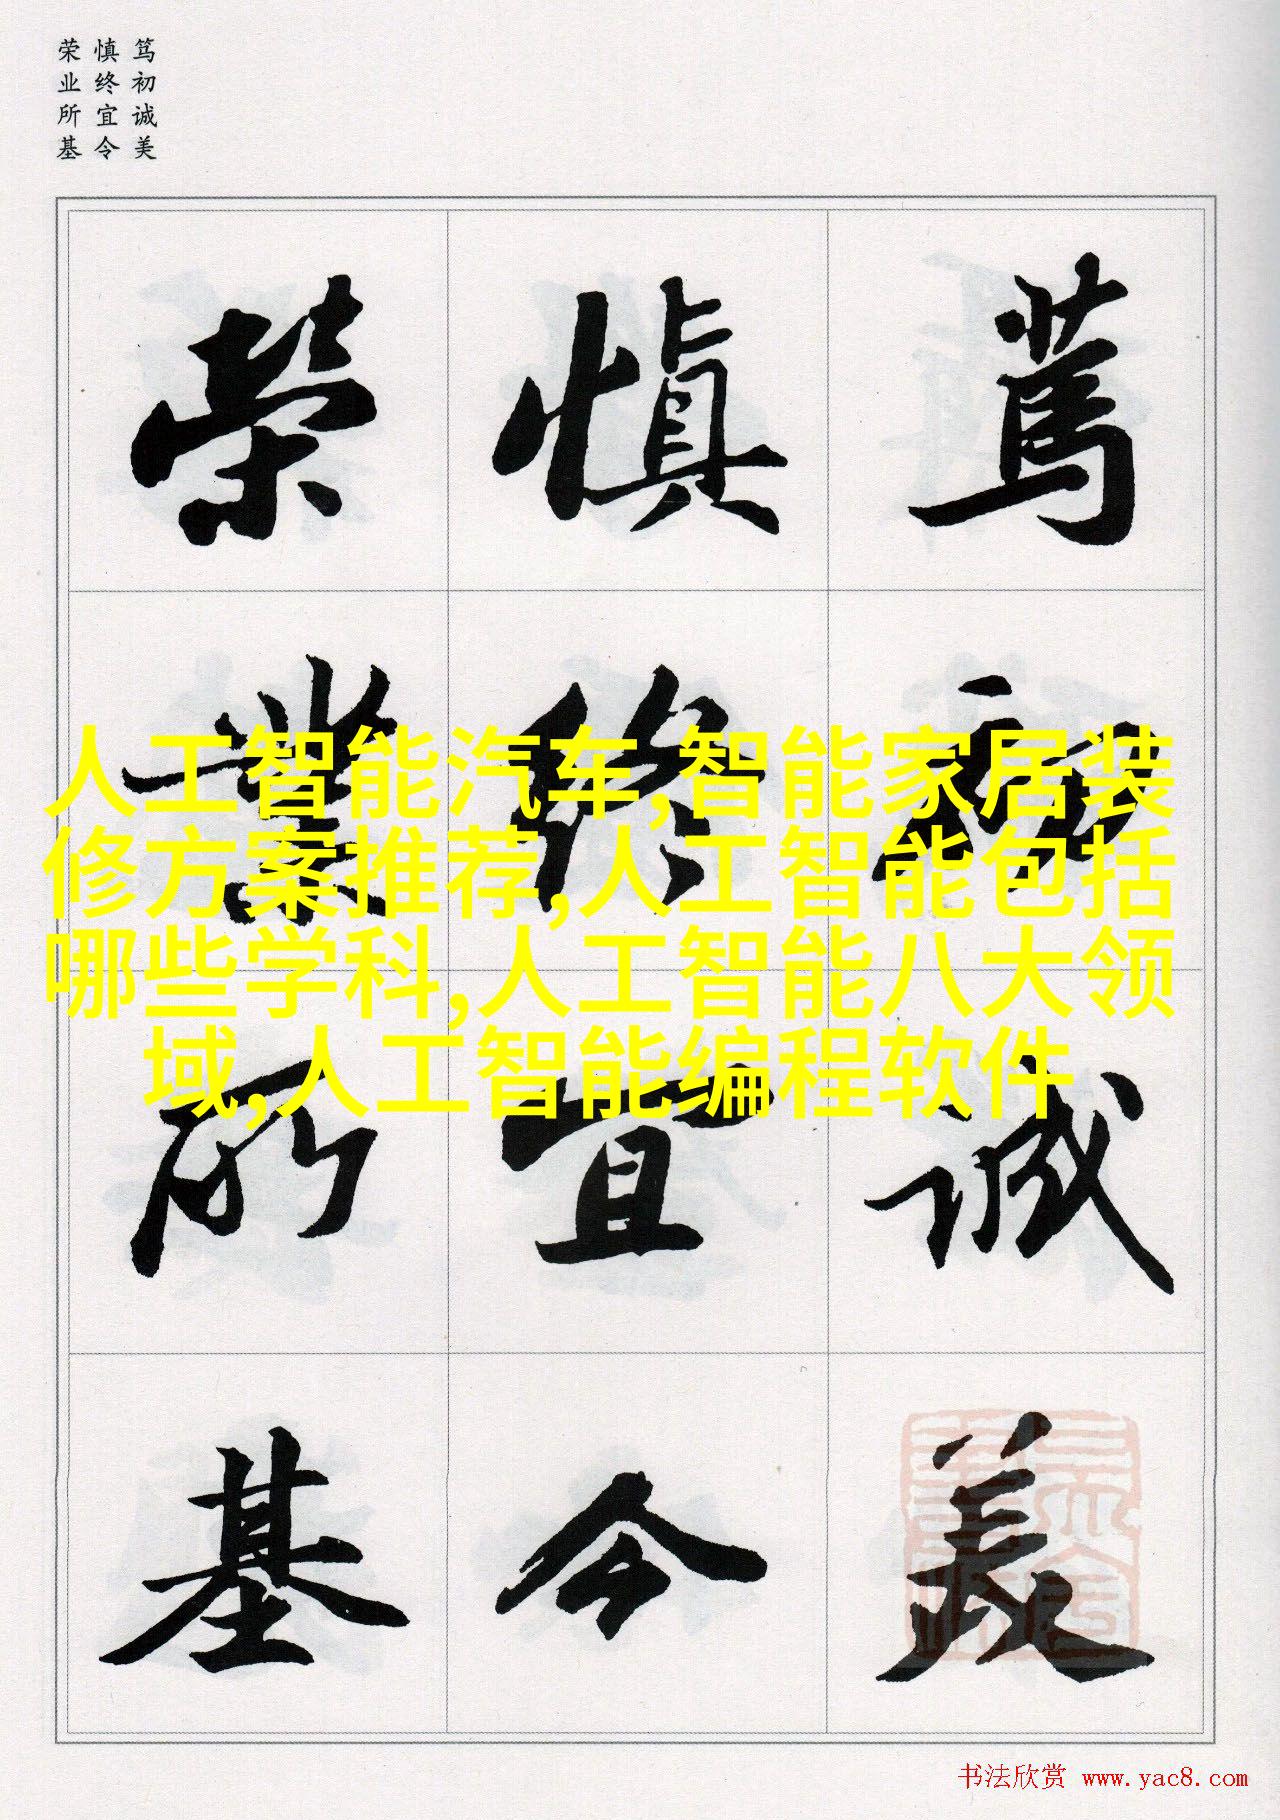 笃初诚美
慎终宜令
荣业所基
篤初誠美
慎終宜令
榮業所基
人工智能汽车,智能家居装
修方案推荐,人工智能包括
哪些学科,人工智能八大领
域,人工智能编程软件
书法欣赏 www.yac8.com